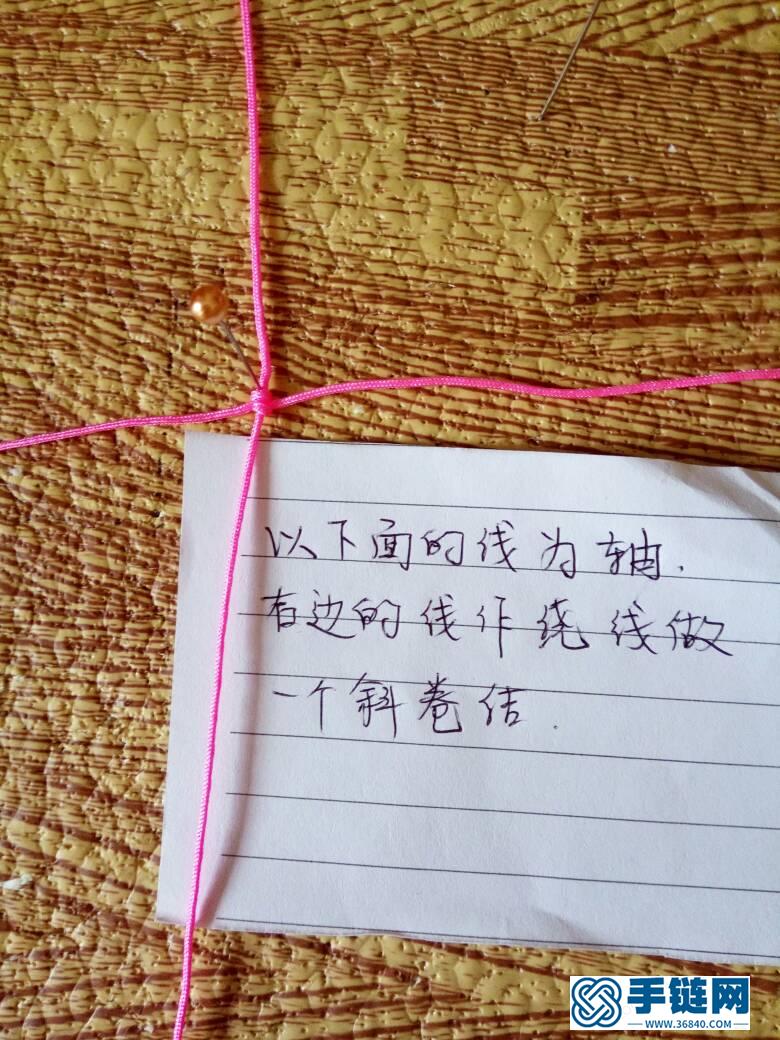 以下面的线为轴.
右边的线作绕线做
一个斜卷结.
手链网
WWW.36840.COM